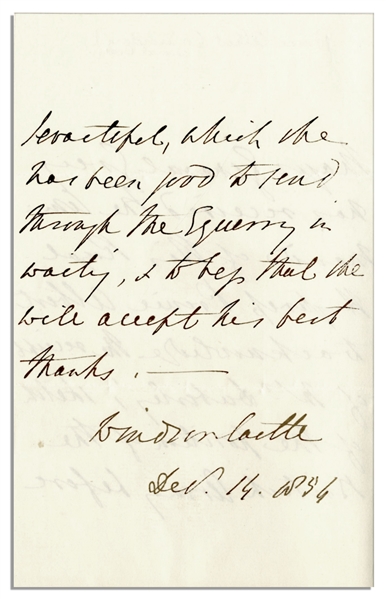 beautiful, which she
has been good to send
through the Equerry in
waiting, & to beg that she
will accept his best
thanks. —
Windsor Castle
Dec. 14. 1854